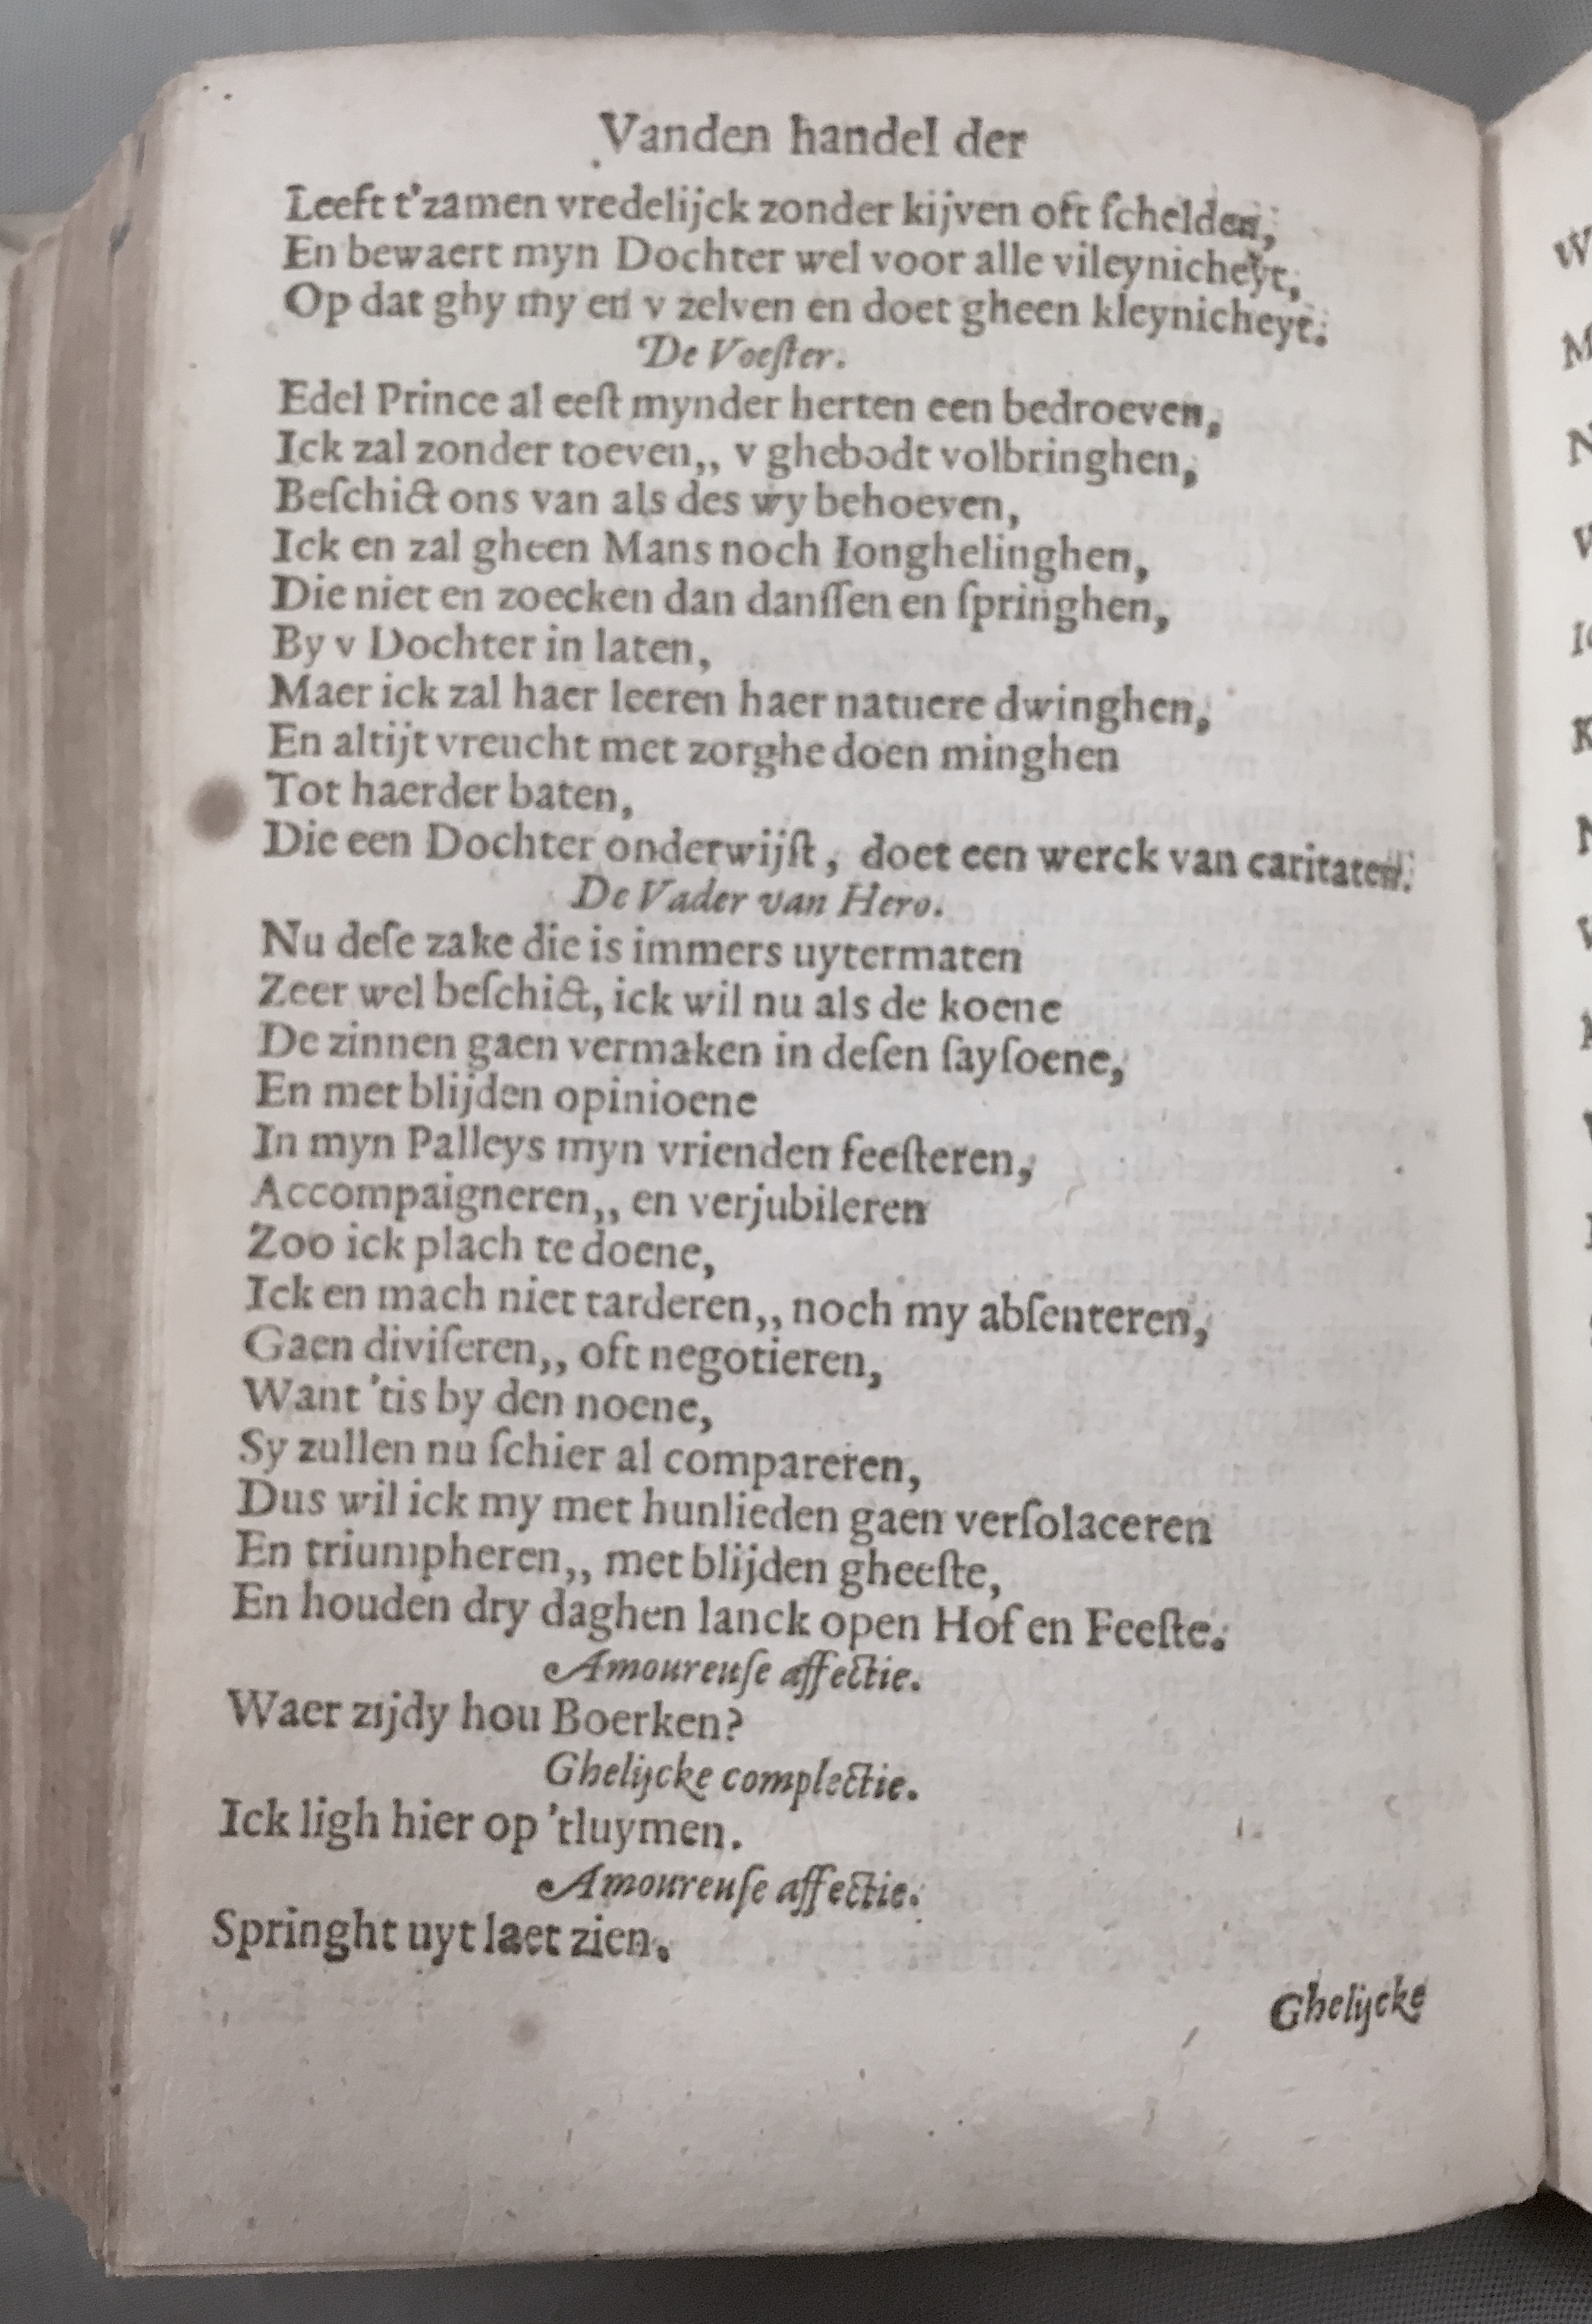 Vanden handel der
Leeft t'zamen vredelijck zonder kijven oft ſchelden,
En bewaert myn Dochter wel voor alle vileynicheyt,
Op dat ghy my en v zelven en doet gheen kleynicheyt.
De Voeſter.
Edel Prince al eeſt mynder herten een bedroeven,
Ick zal zonder toeven,, v ghebodt volbringhen,
Beſchict ons van als des wy behoeven,
Ick en zal gheen Mans noch Ionghelinghen,
Die niet en zoecken dan danſſen en ſpringhen,
By v Dochter in laten,
Maer ick zal haer leeren haer natuere dwinghen,
En altijt vreucht met zorghe doen minghen
Tot haerder baten,
Die een Dochter onderwijſt, doet een werck van caritaten.
De Vader van Hero.
Nu deſe zake die is immers uytermaten
Zeer wel beſchict, ick wil nu als de koene
De zinnen gaen vermaken in deſen ſayſoene,
En met blijden opinioene
In myn Palleys myn vrienden feeſteren,
Accompaigneren,, en verjubileren
Zoo ick plach te doene,
Ick en mach niet tarderen,, noch my abſenteren,
Gaen diviſeren,, oft negotieren,
Want 'tis by den noene,
Sy zullen nu ſchier al compareren,
Dus wil ick my met hunlieden gaen verſolaceren
En triumpheren,, met blijden gheeſte,
En houden dry daghen lanck open Hof en Feeſte.
Amoureuſe affectie.
Waer zijdy hou Boerken?
Ghelijcke complectie.
Ick ligh hier op 'tluymen.
Amoureuſe affectie.
Springht uyt laet zien.
Ghelijcke